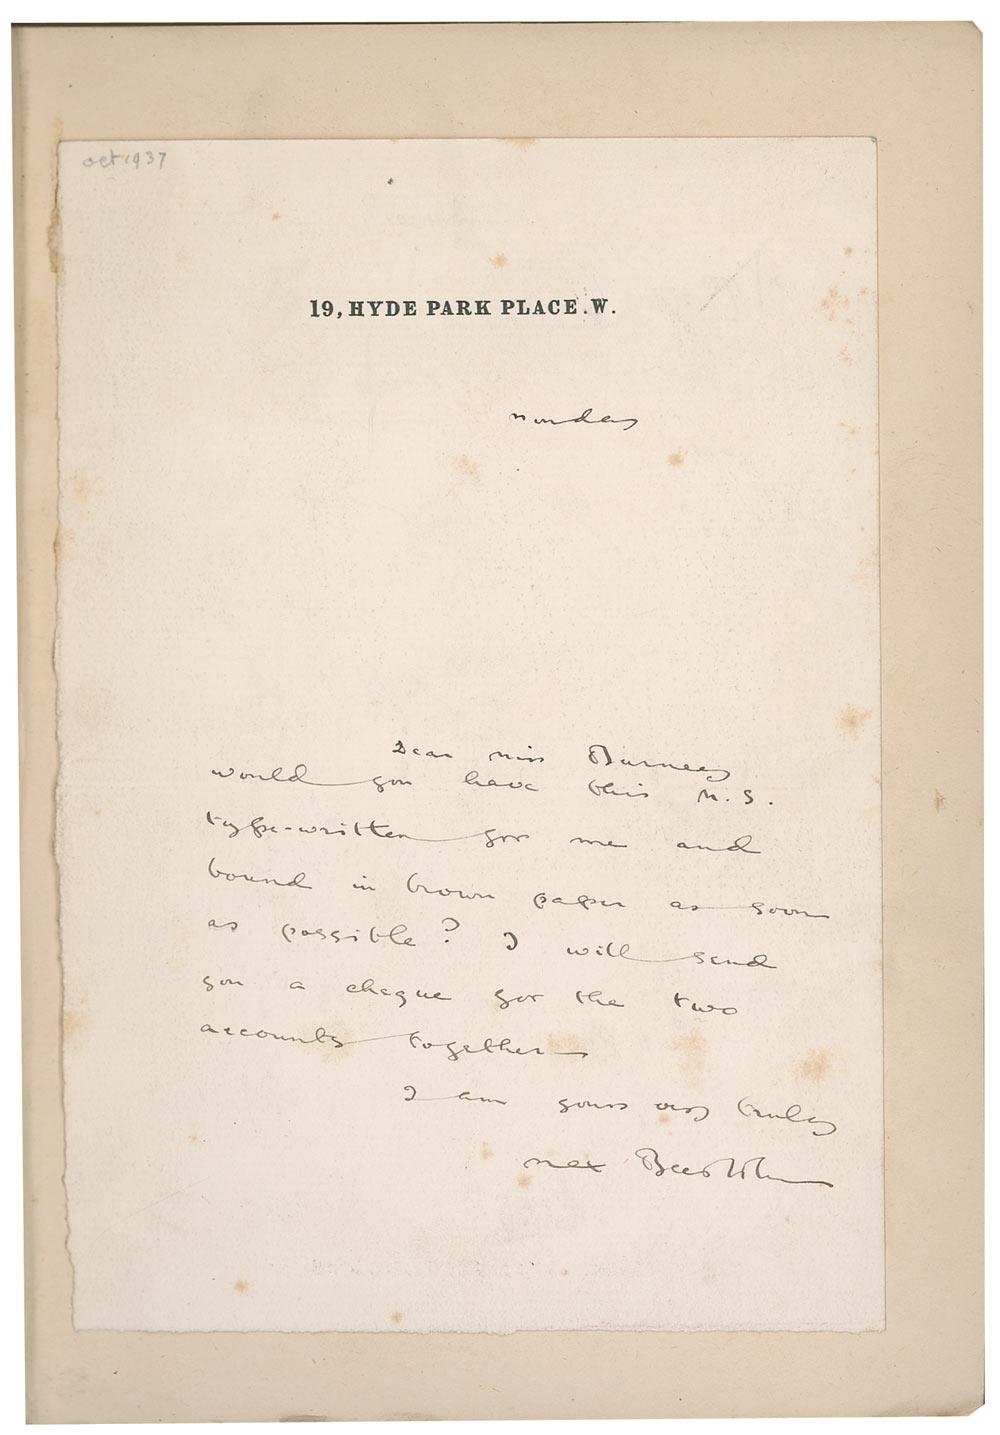 oct 1937
19, HYDE PARK PLACE. W.
Monday
Dear Miss Burney
would you have this M.S.
type-written for me and
bound in brown paper as soon
as possible? I will send
you a cheque for the two
accounts together—
I am yours very truly
Max Beerbohm